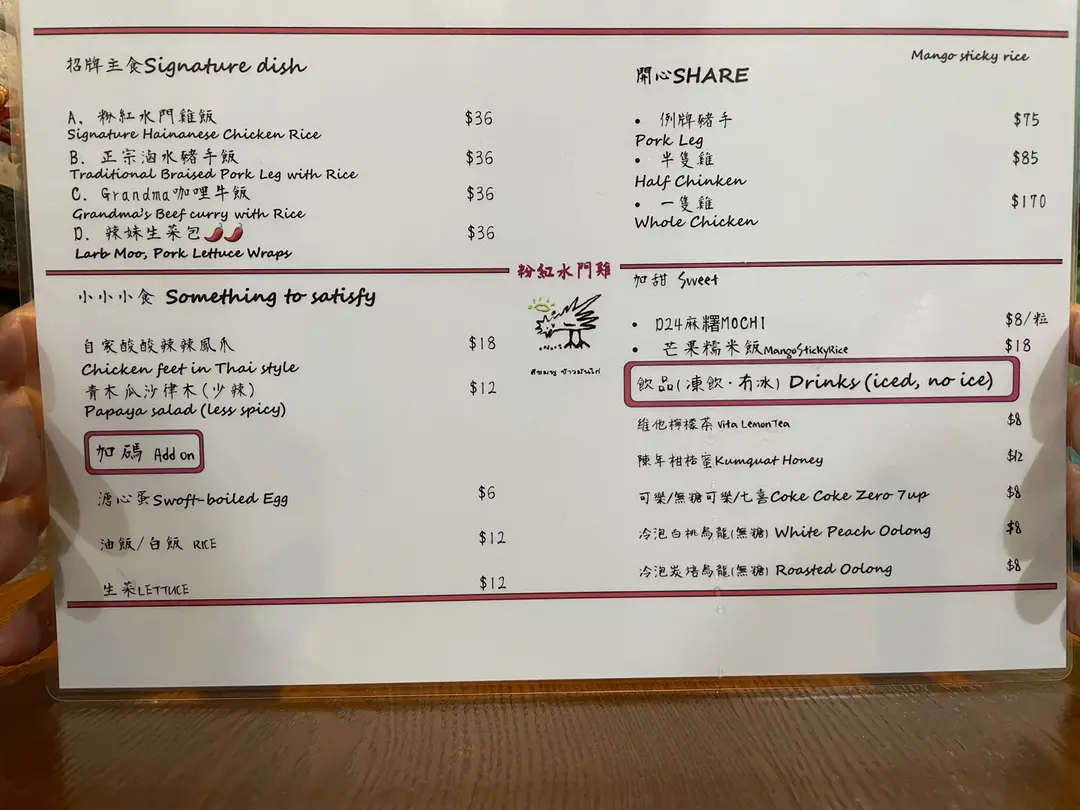 招牌主食Signature dish
A. 粉紅水門雞飯 $36
Signature Hainanese Chicken Rice
B. 正宗滷水豬手飯 $36
Traditional Braised Pork Leg with Rice
C. Grandma咖哩牛飯 $36
Grandma's Beef curry with Rice
D. 辣妹生菜包🌶️🌶️ $36
Larb Moo, Pork Lettuce Wraps
Mango sticky rice
開心SHARE
• 例牌豬手 $75
Pork Leg
• 半隻雞 $85
Half Chinken
• 一隻雞 $170
Whole Chicken
粉紅水門雞
小小小食 Something to satisfy
自家酸酸辣辣鳳爪 $18
Chicken feet in Thai style
青木瓜沙律木(少辣) $12
Papaya salad (less spicy)
加碼 Add on
溏心蛋Swoft-boiled Egg $6
油飯/白飯 RICE $12
生菜LETTUCE $12
加甜 Sweet
• D24麻糬MOCHI $8/粒
• 芒果糯米飯MangoStickyRice $18
飲品(凍飲·冇冰) Drinks (iced, no ice)
維他檸檬茶 Vita LemonTea $8
陳年柑桔蜜Kumquat Honey $12
可樂/無糖可樂/七喜Coke Coke Zero 7up $8
冷泡白桃烏龍(無糖) White Peach Oolong $8
冷泡炭焙烏龍(無糖) Roasted Oolong $8